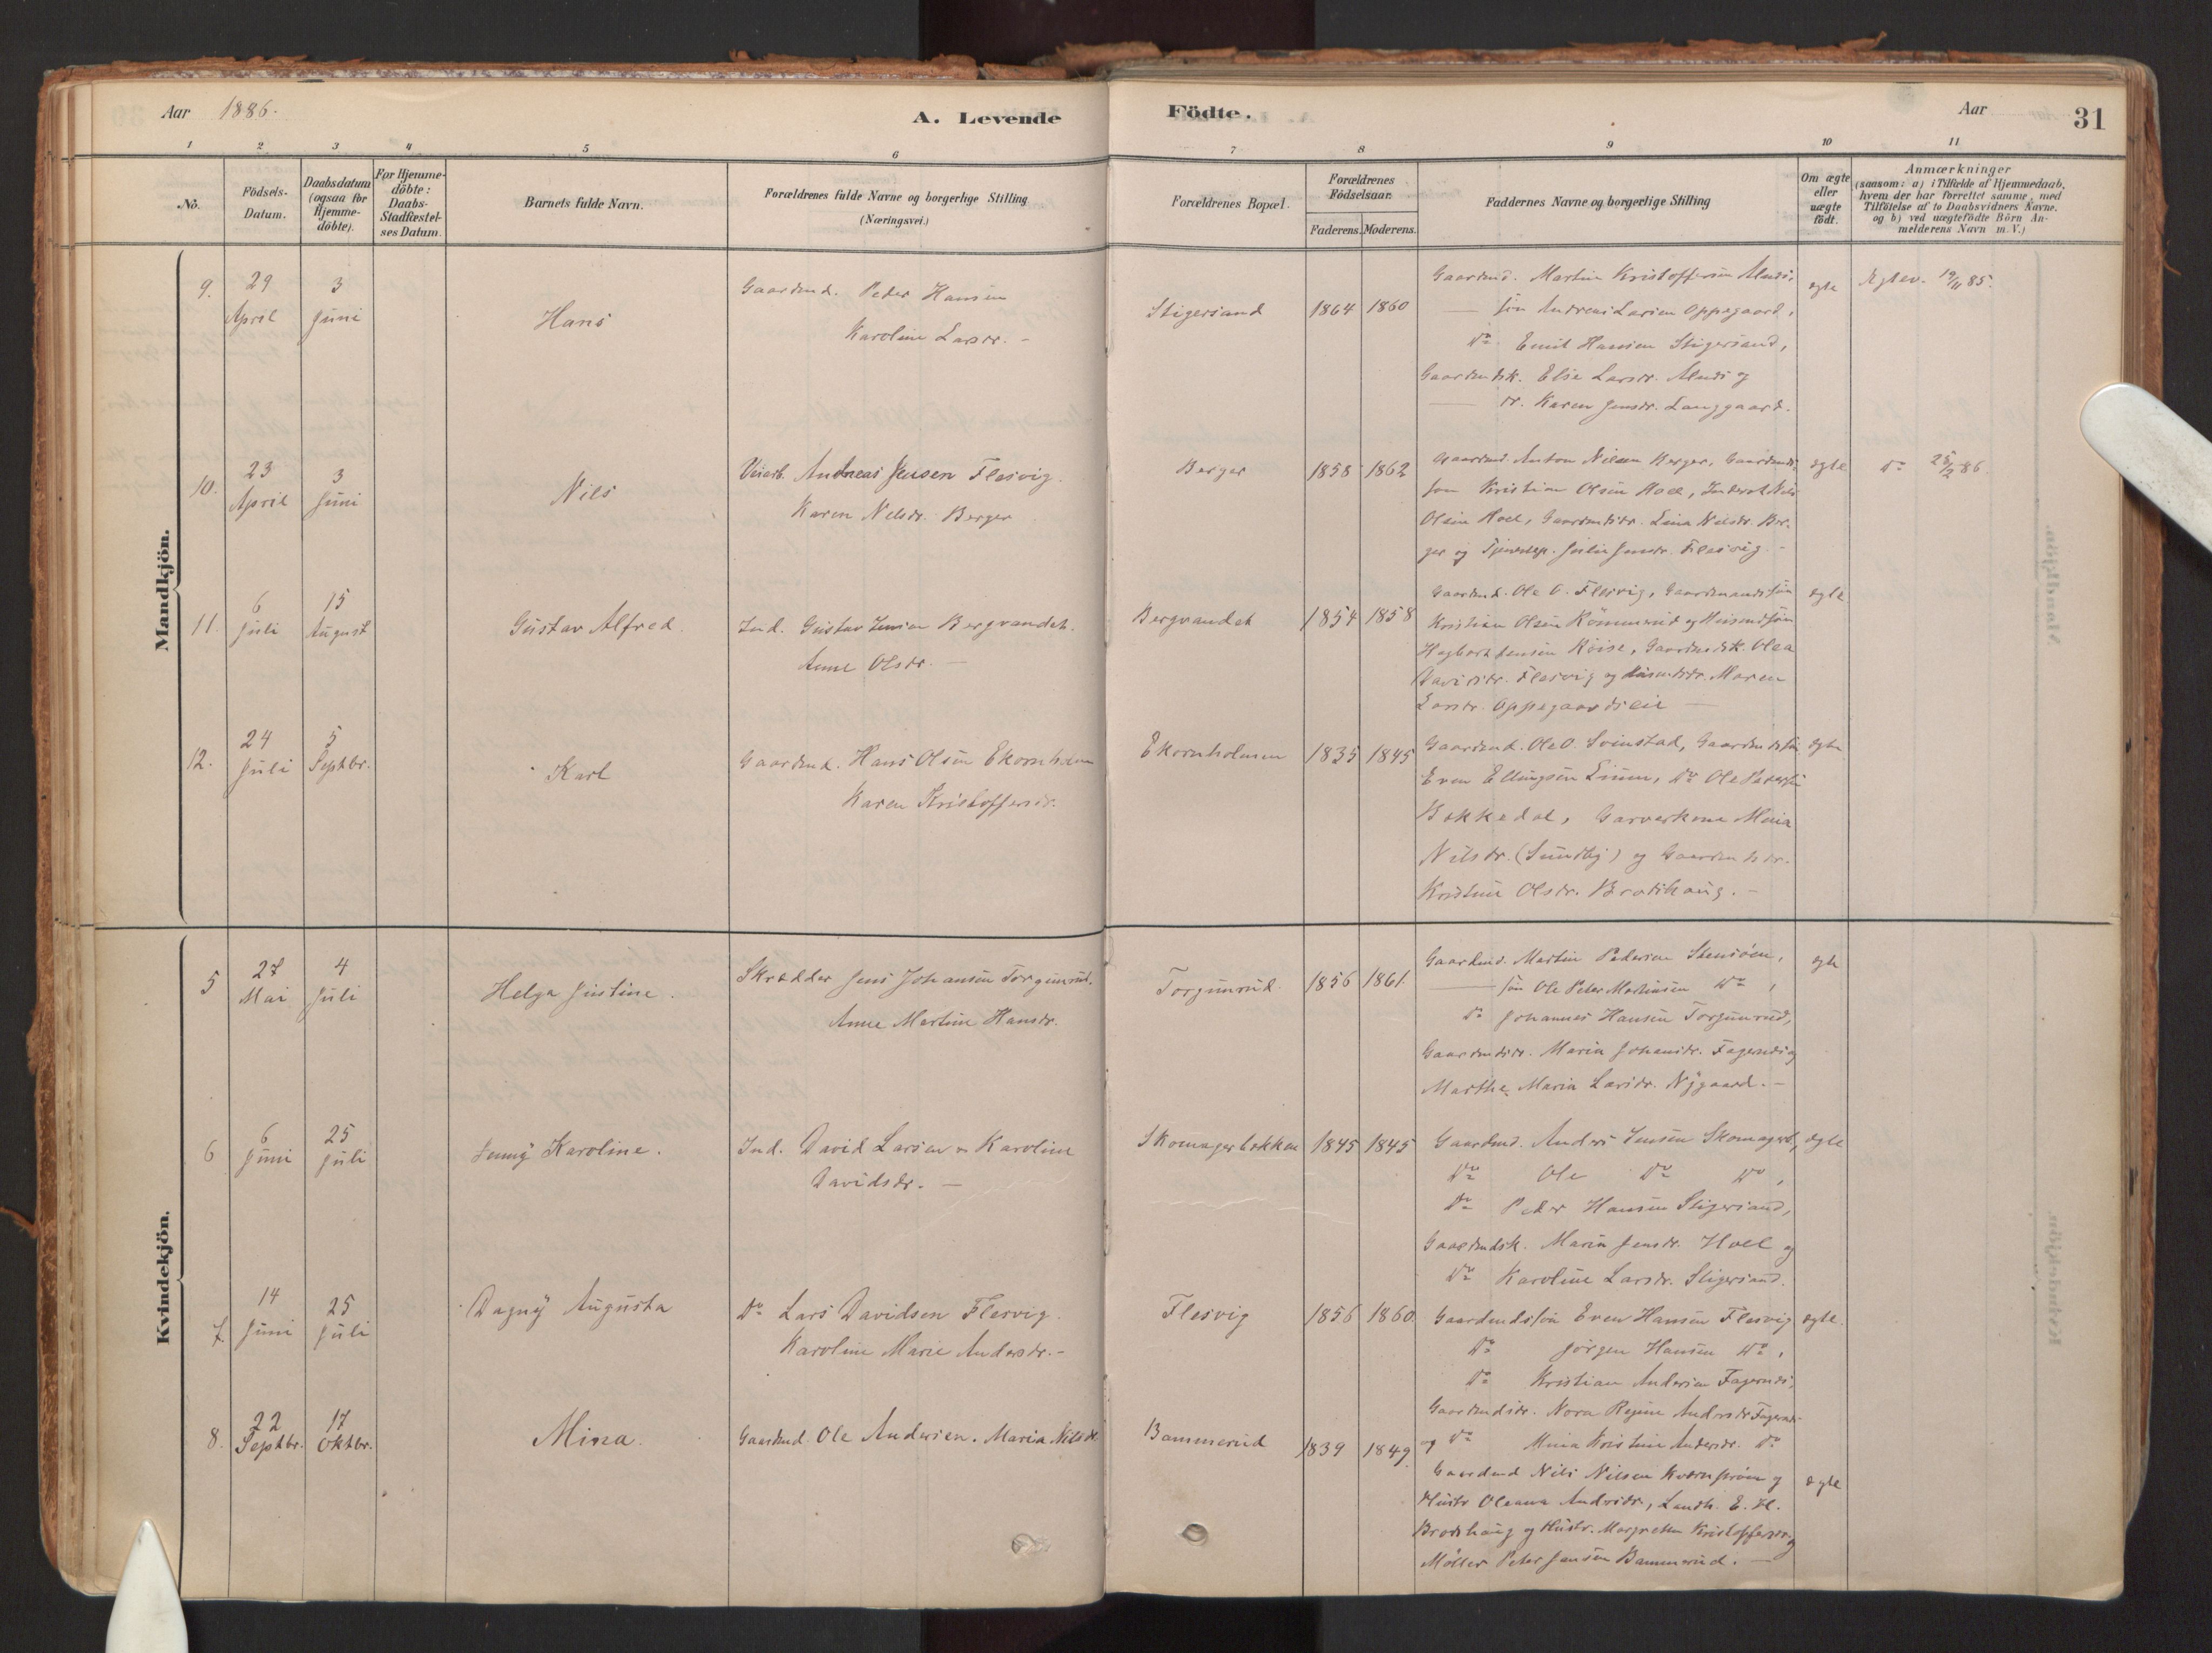 Aar 1886.
A. Levende
Födte.
Aar
31
1 2 3 4 5 6 7 8 9 10 11
No.
Födsels-
Datum.
Daabsdatum
(ogsaa for
Hjemme-
döbte).
For Hjemme-
döbte:
Daabs-
Stadfæstel-
ses Datum.
Barnets fulde Navn.
Forældrenes fulde Navne og borgerlige Stilling
(Næringsvei.)
Forældrenes Bopæl.
Forældrenes
Födselsaar.
Faderens. Moderens.
Faddernes Navne og borgerlige Stilling
Om ægte
eller
uægte
födt.
Anmærkninger
(saasom: a) i Tilfælde af Hjemmedaab,
hvem der har forrettet samme, med
Tilföielse af to Daabsvidners Navne,
og b) ved uægtefödte Börn An-
melderens Navn m. V.)
Mandkjön.
9.
29
April
3
Juni
Hans
Gaardmd. Peder Hansen
Karoline Larsdr. -
Stigersand
1864 1860
Gaardmd. Martin Kristoffersen
— søn Andreas Larsen Oppegaard,
Do Emil Hansen Stigersand,
Gaardmdsk. Else Larsdr. og
— dr. Karen Jensdr. Langgaard.
egte
Egtev. 19/11 85.
10.
23
April
3
Juni
Nils
Veiarb. Andreas Jensen Flesvig.
Karen Nilsdr. Berger
Berger
1858 1862
Gaardmd. Anton Nilsen Berger, Gaardmds
søn Kristian Olsen Hoel, Nils
Olsen Hoel, Gaardmdsdr. Lina Nilsdr. Ber-
ger og Julie Jensdr. Flesvig. -
egte
Do 25/2 86.
11.
6
Juli
15
August
Gustav Alfred.
Ind. Gustav Bergvandet.
Anne Olsdr. —
Bergvandet
1854 1858
Gaardmd. Ole O. Flesvig, Gaardmandssøn
Kristian Olsen og
Hagbart Jensen Röise, Gaardmdsk. Olea
Davidsdr. Flesvig og Maren
Larsdr. Oppegaardseie —
egte
12.
24
Juli
5
Septbr.
Karl
Gaardmd. Hans Olsen Ekornholmen
Karen Kristoffersdr.
Ekornholmen
1835 1845
Gaardmd. Ole O. Svinstad, Gaardmdssøn
Even Ellingsen Do Ole
Bekkedal, Garverkone
Nilsdr. (Sundby) og Gaardmdsdr.
Kristine Olsdr. Brodshaug. -
egte
Kvindekjön.
5
27
Mai
4
Juli
Helga Justine.
Skrædder Jens Johansen Torgunrud.
Anne Martine Hansdr.
Torgunrud.
1856 1861.
Gaardmd. Martin Pedersen
— søn Ole Peter Martinsen Do,
Do Johannes Hansen Torgunrud,
Gaardmdsdr. Maria Johansdr. og
Marthe Maria Larsdr. Nygaard. -
egte
6
6
Juni
25
Juli
Jenny Karoline.
Ind. David Larsen og Karoline
Davidsdr. —
Skomagerbekken
1845 1845
Gaardmd. Anders Jensen Skomagerb,
Do Ole Do Do,
Do Peder Hansen Stigersand,
Gaardmdsk. Maria Jensdr. Hoel og
Do Karoline Larsdr. Stigersand.
egte
7.
14
Juni
25
Juli
Dagny Augusta
Do Lars Davidsen Flesvig.
Karoline Marie Andersdr. -
Flesvig
1856 1860.
Gaardmdssøn Even Hansen Flesvig
Do Jørgen Hansen Do,
Do Kristian Andersen Fagernæs,
Gaardmdsdr. Nora Regine Andersdr. Fagernæs
og Do Mina Kristine Andersdr. Do
egte.
8.
22
Septbr.
17
Oktbr.
Mina.
Gaardmd. Ole Andersen. Maria Nilsdr.
Bammerud
1839 1849.
Gaardmd Nils Nilsen og
Hustr Oleana Andrsdr., Landh. E. H.
Brodshaug og Hustr. Margrethe Kristoffersdr. og
Möller Peter Jansen Bammerud. —
egte